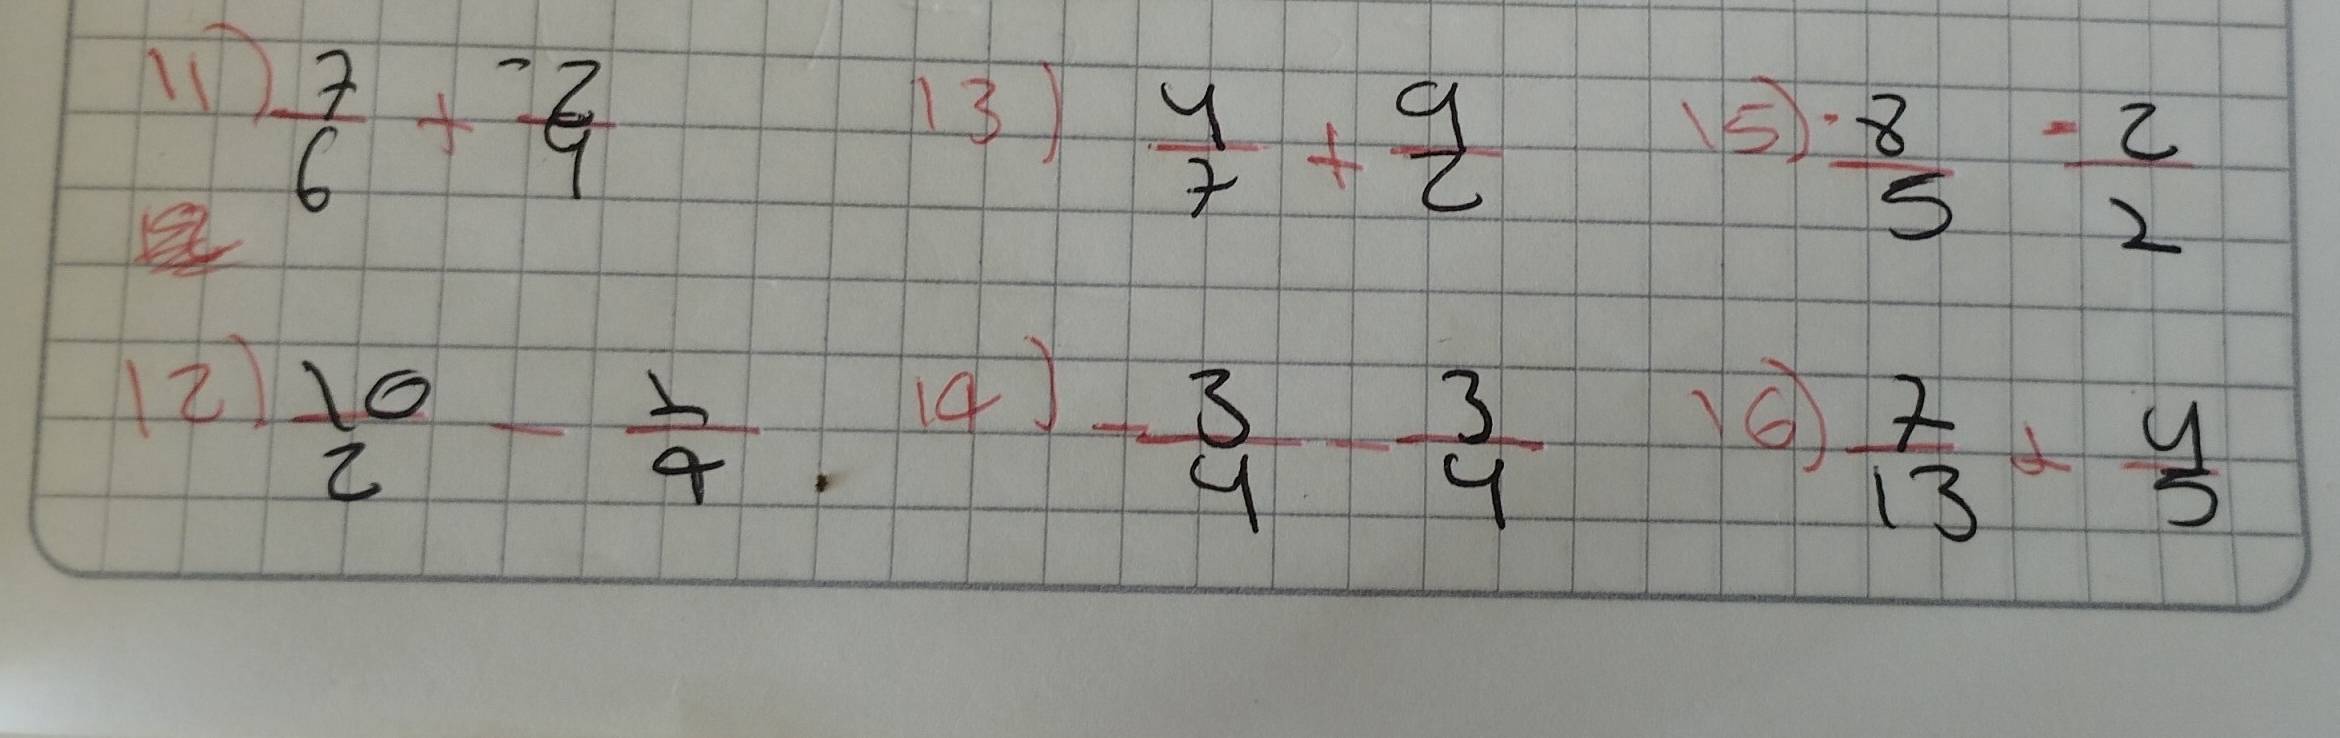 11) 7/6 + -2/9 13) 4/7 + 9/2 15) -8/5 - 2/2
12) 10/2 - 1/4 14) -3/4 - 3/4 16) 7/13 + 4/5